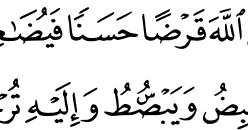 ٱللَّهَ قَرْضًا حَسَنًا فَيُضَـٰعِ
بِضُ وَيَبْصُۜطُ وَإِلَيْهِ تُرْجَ